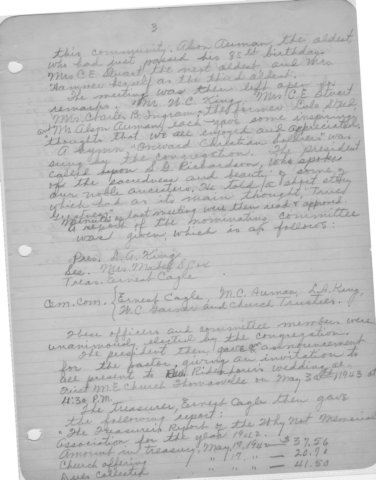 3
this community. Alson Auman, the oldest
who had just passed his 85th birthday,
Mrs C.E. Stuart the next oldest and Mrs
Garner herself as the third oldest.
The meeting was then left open for
remarks. Mr. W.C. King, Mrs C.E. Stuart
Mrs. Charles B. Ingram, the former Lola
and Mr. Alson Auman, each gave some inspiring
thoughts that we all enjoyed and appreciated.
A Hymn "Onward Christian Soldiers" was
sung by the congregation. The President
called upon Richardson, who spoke
on the sacrifices and beauty of some of
our noble ancestors. He told a short story
which had as its main thought, "True
Minutes of last meeting were then read & approved.
A report of the nominating committee
was given, which is as follows:
Pres. D.A. King
Sec. Mrs. Mabel S. Cox
Treas. Ernest Cagle
Cem. Com. { Ernest Cagle, M.C. Auman, King,
W.C. Garner and Church Trustees.
These officers and committee members were
unanimously elected by the congregation.
The president then gave an announcement
for the pastor, giving an invitation to
all present to Ridenhour's wedding at
First M.E Church Thomasville on May 1943 at
4:30 P.M.
The Treasurer, Ernest Cagle then gave
the following report:
"The Treasurer's Report of the Why Not Memorial
Association for the year 1942.
Amount in treasury, May 1942 — $37.56
Church offering " 17, " — 20.70
Collected " " " — 41.50